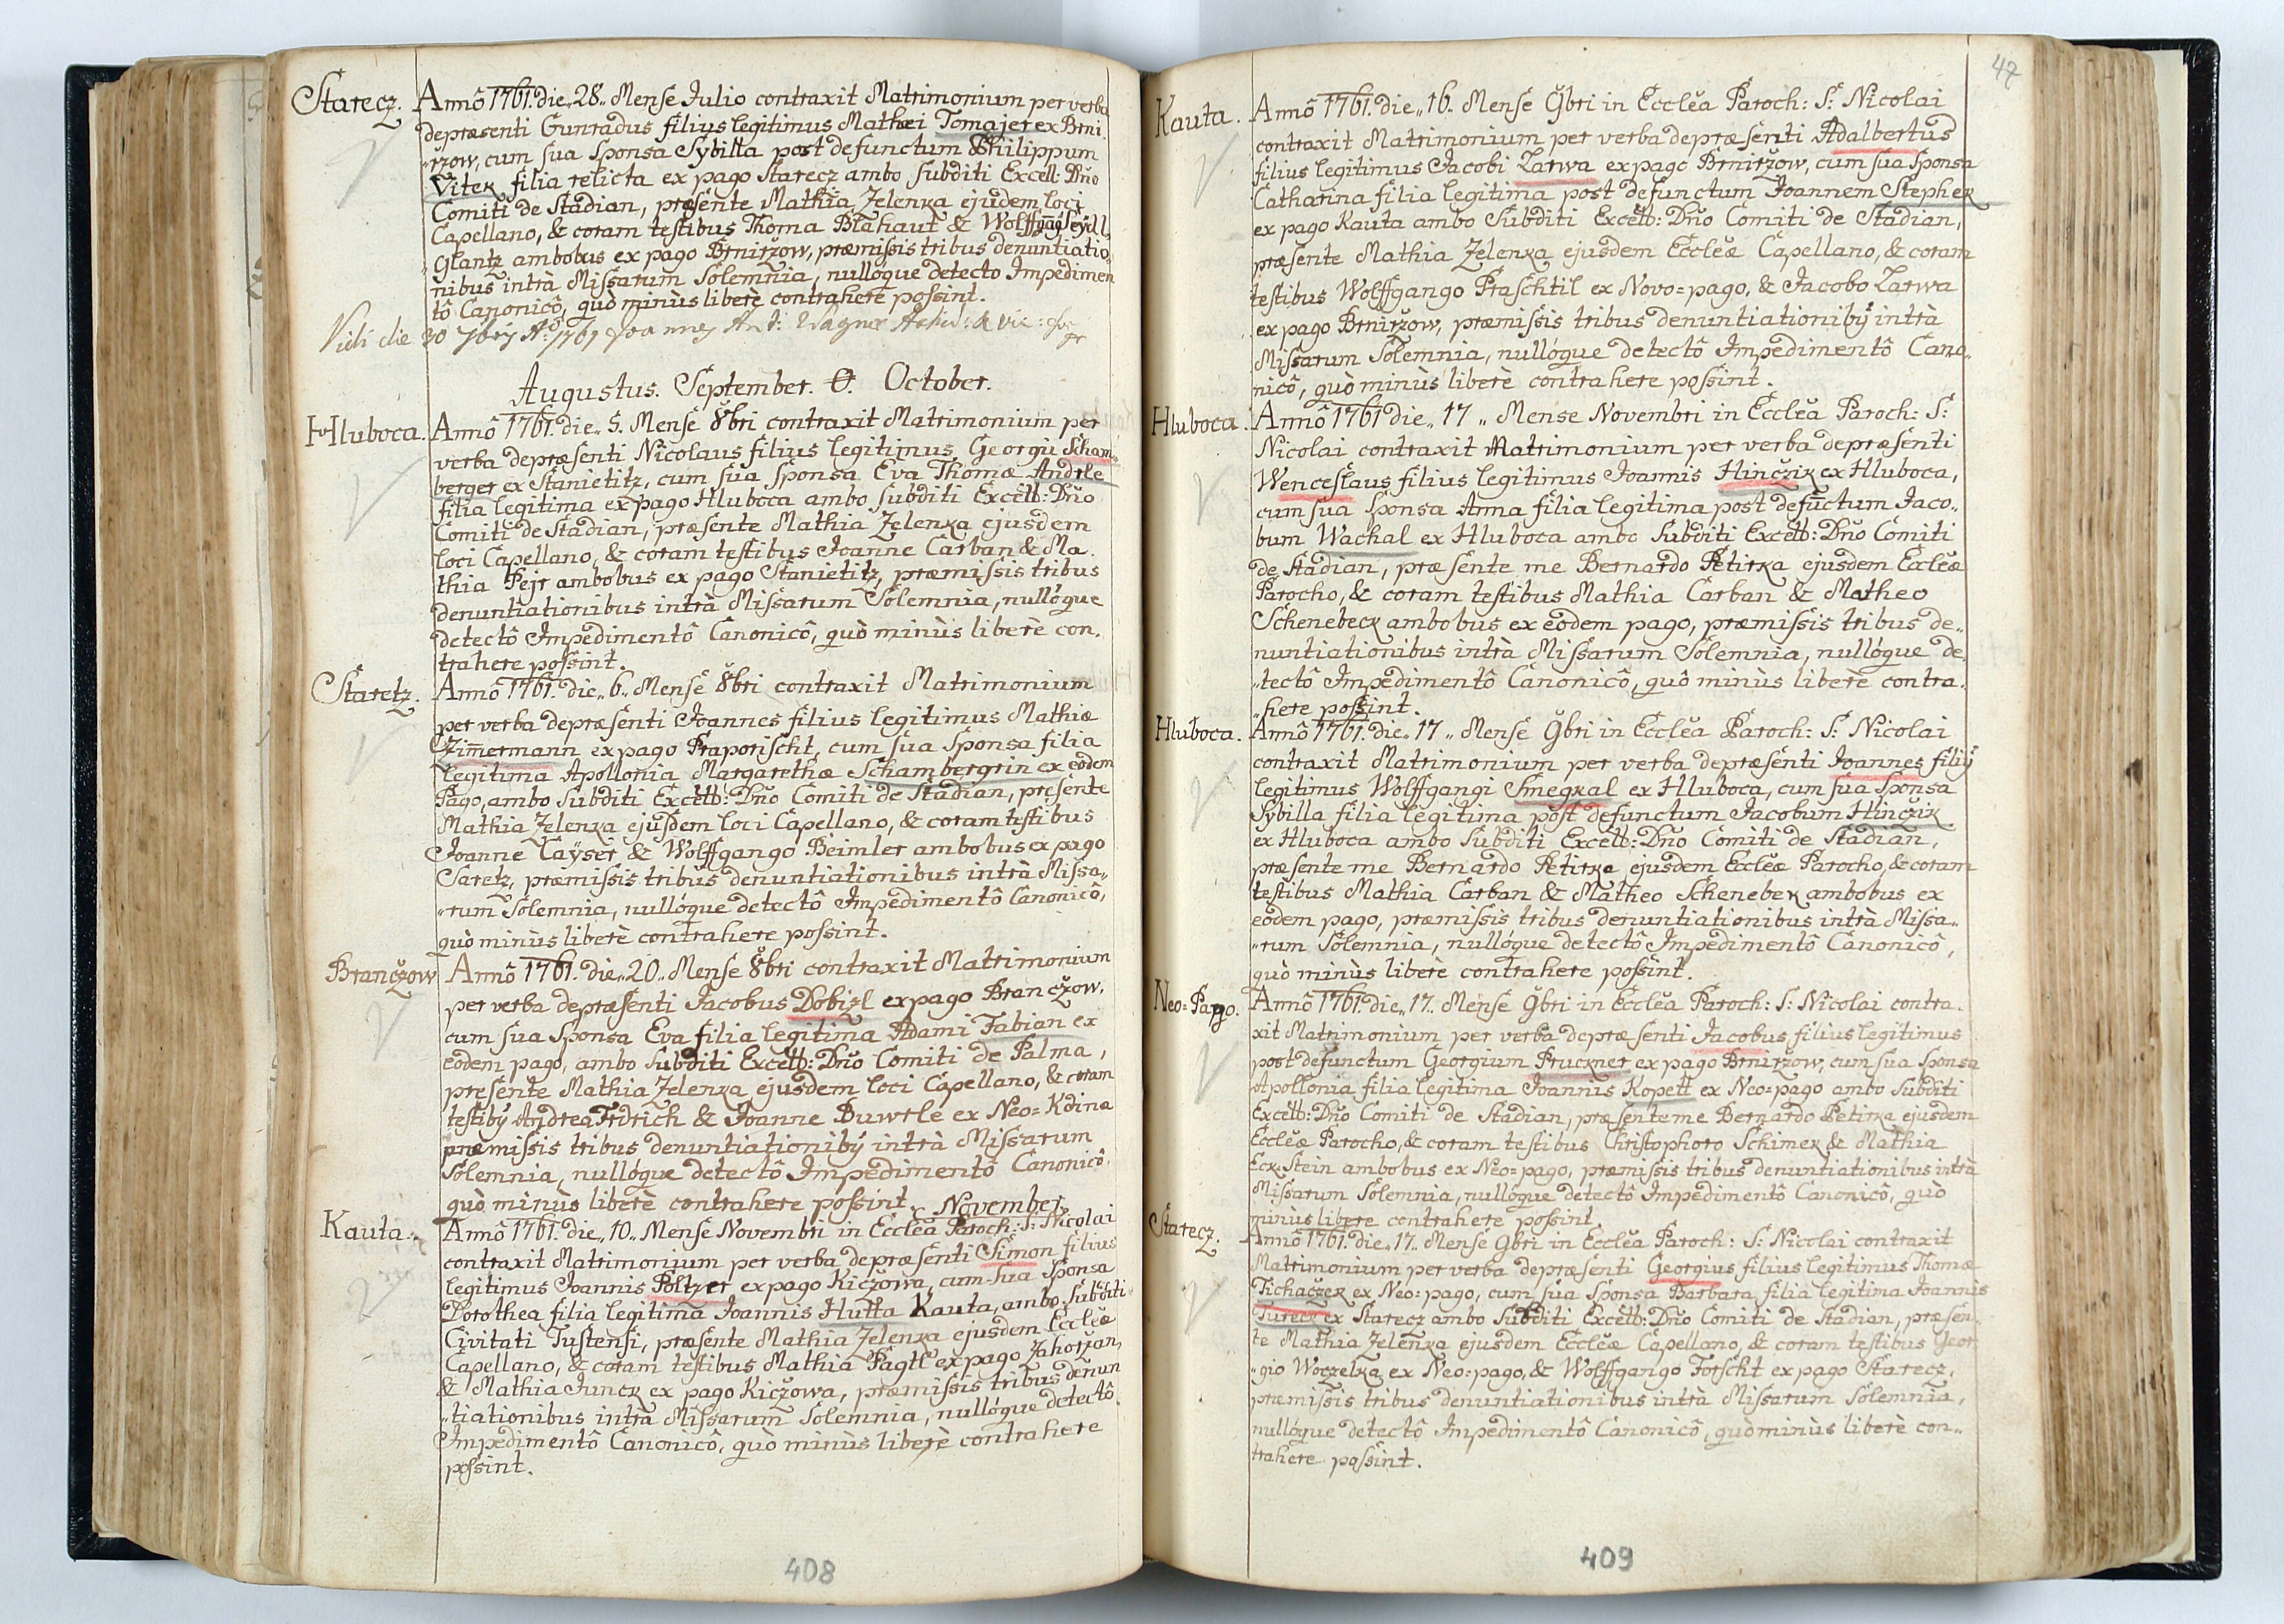 Starecz. Annô 1761. die „28„ Mense Julio contraxit Matrimonium per verba
depræsenti Cunradus filius legitimus Mathæi Tomajer ex Brni„
„rzow, cum sua Sponsa Sybilla post defunctum Philippum
Vitek filia relicta ex pago Starecz ambo subditi Excell: Dño
Comiti de Stadian, præsente Mathia Zelenka ejusdem loci
Capellano, & coram testibus Thoma Blahaut & Wolffgāg Seydl,
Glantz ambobus ex pago Brniržow, præmissis tribus denuntiatio„
nibus intrà Missarum Solemnia, nullóque detecto Impedimen
tô Canonicô, quò minùs liberè contrahere possint.
Vidi die 30 7bris Aō: 1761 Joannes Ant: Wagner
Augustus. September. O. October.
Hluboca. Annô 1761. die „5. Mense 8bri contraxit Matrimonium per
verba depræsenti Nicolaus filius legitimus Georgii Scham„
berger ex Stanietitz, cum sua Sponsa Eva Thomæ Andrle
filia legitima ex pago Hluboca ambo subditi Excell: Dño
Comiti de Stadian, præsente Mathia Zelenka ejusdem
loci Capellano, & coram testibus Joanne Carban & Ma.
thia Pejr ambobus ex pago Stanietitz, præmissis tribus
denuntiationibus intrà Missarum Solemnia, nullóque
detectô Impedimentô Canonicô, quò minùs liberè con.
trahere possint.
Staretz. Annô 1761. die „6„ Mense 8bri contraxit Matrimonium
per verba depræsenti Joannes filius legitimus Mathiæ
Zimermann ex pago Praporischt, cum sua Sponsa filia
legitima Apollonia Margarethæ Schambergrin ex eodem
Pago, ambo Subditi Excell: Dño Comiti de Stadian, presente
Mathia Zelenka ejusdem loci Capellano, & coram testibus
Joanne Cayser & Wolffgango Beimler ambobus ex pago
Saretz, præmissis tribus denuntiationibus intrà Missa„
„rum Solemnia, nullóque detectô Impedimentô Canonicô,
quò minùs liberè contrahere possint.
Brančzow Annô 1761. die „20„ Mense 8bri contraxit Matrimonium
per verba depræsenti Jacobus Dobizl ex pago Brančzow,
cum sua Sponsa Eva filia legitima Adami Fabian ex
eodem pago, ambo Subditi Excell: Dño Comiti de Palma,
presente Mathia Zelenka ejusdem loci Capellano, & coram
testiby Andrea Frdrich & Joanne Buwrle ex Neo=Kdina
præmissis tribus denuntiationiby intrà Missarum
Solemnia, nullóque detectô Impedimentô Canonicô,
quò minùs liberè contrahere possint. November.
Kauta. Annô 1761. die „10„ Mense Novembri in Ecclẽa Paroch: S: Nicolai
contraxit Matrimonium per verba depræsenti Simon filius
legitimus Joannis Poltzer ex pago Kičžowa, cum sua Sponsa
Dorothea filia legitima Joannis Hutta Kauta, ambo Subditi
Civitati Tustensi, præsente Mathia Zelenka ejusdem Ecclẽæ
Capellano, & coram testibus Mathia Pagtl ex pago Zahoržan,
& Mathia Junck ex pago Kičžowa, præmissis tribus denun
„tiationibus intrà Missarum Solemnia, nullóque detectô
Impedimentô Canonicô, quò minùs liberè contrahere
possint.
408
47
Kauta. Annô 1761. die „16. Mense 9bri in Ecclẽa Paroch: S: Nicolai
contraxit Matrimonium per verba depræsenti Adalbertus
filius legitimus Jacobi Zarwa ex pago Brniržow, cum sua Sponsa
Catharina filia legitima post defunctum Joannem Stephek
ex pago Kauta ambo Subditi Excell: Dño Comiti de Stadian,
præsente Mathia Zelenka ejusdem Ecclẽæ Capellano, & coram
testibus Wolffgango Praschtil ex Novo=pago, & Jacobo Zarwa
ex pago Brniržow, præmissis tribus denuntiationiby intrà
Missarum Solemnia, nullóque detectô Impedimentô Cano„
nicô, quò minùs liberè contrahere possint.
Hluboca. Annô 1761 die „17„ Mense Novembri in Ecclẽa Paroch: S:
Nicolai contraxit Matrimonium per verba depræsenti
Wenceslaus filius legitimus Joannis Hinčzik ex Hluboca,
cum sua Sponsa Anna filia legitima post defuñctum Jaco„
bum Wachal ex Hluboca ambo Subditi Excell: Dño Comiti
de Stadian, præsente me Bernardo Petirka ejusdem Ecclẽæ
Parocho, & coram testibus Mathia Carban & Matheo
Schenebeck ambobus ex eodem pago, præmissis tribus de„
nuntiationibus intrà Missarum Solemnia, nullóque de„
„tectô Impedimentô Canonicô, quò minùs liberè contra.
„here possint.
Hluboca. Annô 1761. die „17„ Mense 9bri in Ecclẽa Paroch: S: Nicolai
contraxit Matrimonium per verba depræsenti Joannes filiy
legitimus Wolffgangi Smegkal ex Hluboca, cum sua Sponsa
Sybilla filia legitima post defunctum Jacobum Hinčzik
ex Hluboca ambo Subditi Excell: Dño Comiti de Stadian,
præsente me Bernardo Petirka ejusdem Ecclẽæ Parocho, & coram
testibus Mathia Carban & Matheo Schenebek ambobus ex
eodem pago, præmissis tribus denuntiationibus intrà Missa„
„rum Solemnia, nullóque detectô Impedimentô Canonicô,
quò minùs liberè contrahere possint.
Neo=Pago. Annô 1761. die „17. Mense 9bri in Ecclẽa Paroch: S: Nicolai contra.
xit Matrimonium per verba depræsenti Jacobus filius legitimus
post defunctum Georgium Pruckner ex pago Brniržow, cum sua Sponsa
Apollonia filia legitima Joannis Kopett ex Neo=pago ambo Subditi
Excell: Dño Comiti de Stadian, præsente me Bernardo Petirka ejusdem
Ecclẽæ Parocho, & coram testibus Christophoro Schimek & Mathia
Eck-Stein ambobus ex Neo=pago, præmissis tribus denuntiationibus intrà
Missarum Solemnia, nullóque detectô Impedimentô Canonicô, quò
minùs libere contrahere possint.
Starecz. Annô 1761. die „17„ Mense 9bri in Ecclẽa Paroch: S: Nicolai contraxit
Matrimonium per verba depræsenti Georgius filius legitimus Thomæ
Tichačzek ex Neo=pago, cum sua Sponsa Barbara filia legitima Joannis
Tureck ex Starecz ambo Subditi Excell: Dño Comiti de Stadian, præsen„
te Mathia Zelenka ejusdem Ecclẽæ Capellano, & coram testibus Geor
„gio Woczelka ex Neo=pago, & Wolffgango Forscht ex pago Starecz,
præmissis tribus denuntiationibus intrà Missarum Solemnia,
nullóque detectô Impedimentô Canonicô, quò minùs liberè con„
trahere possint.
409